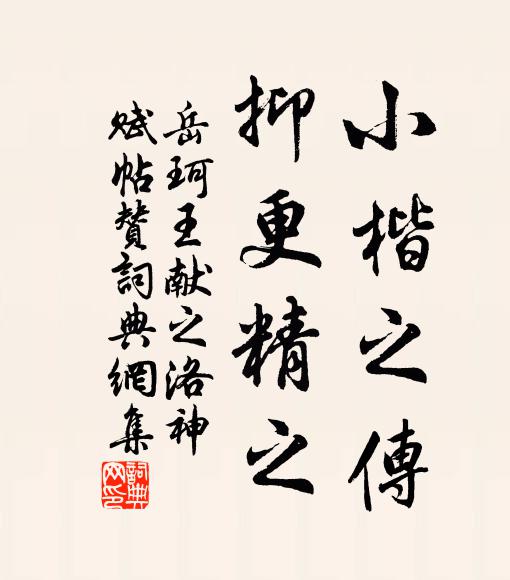 小楷之傳
抑更精之
岳珂王献之洛神
赋帖贊詞典網集
詞典网印